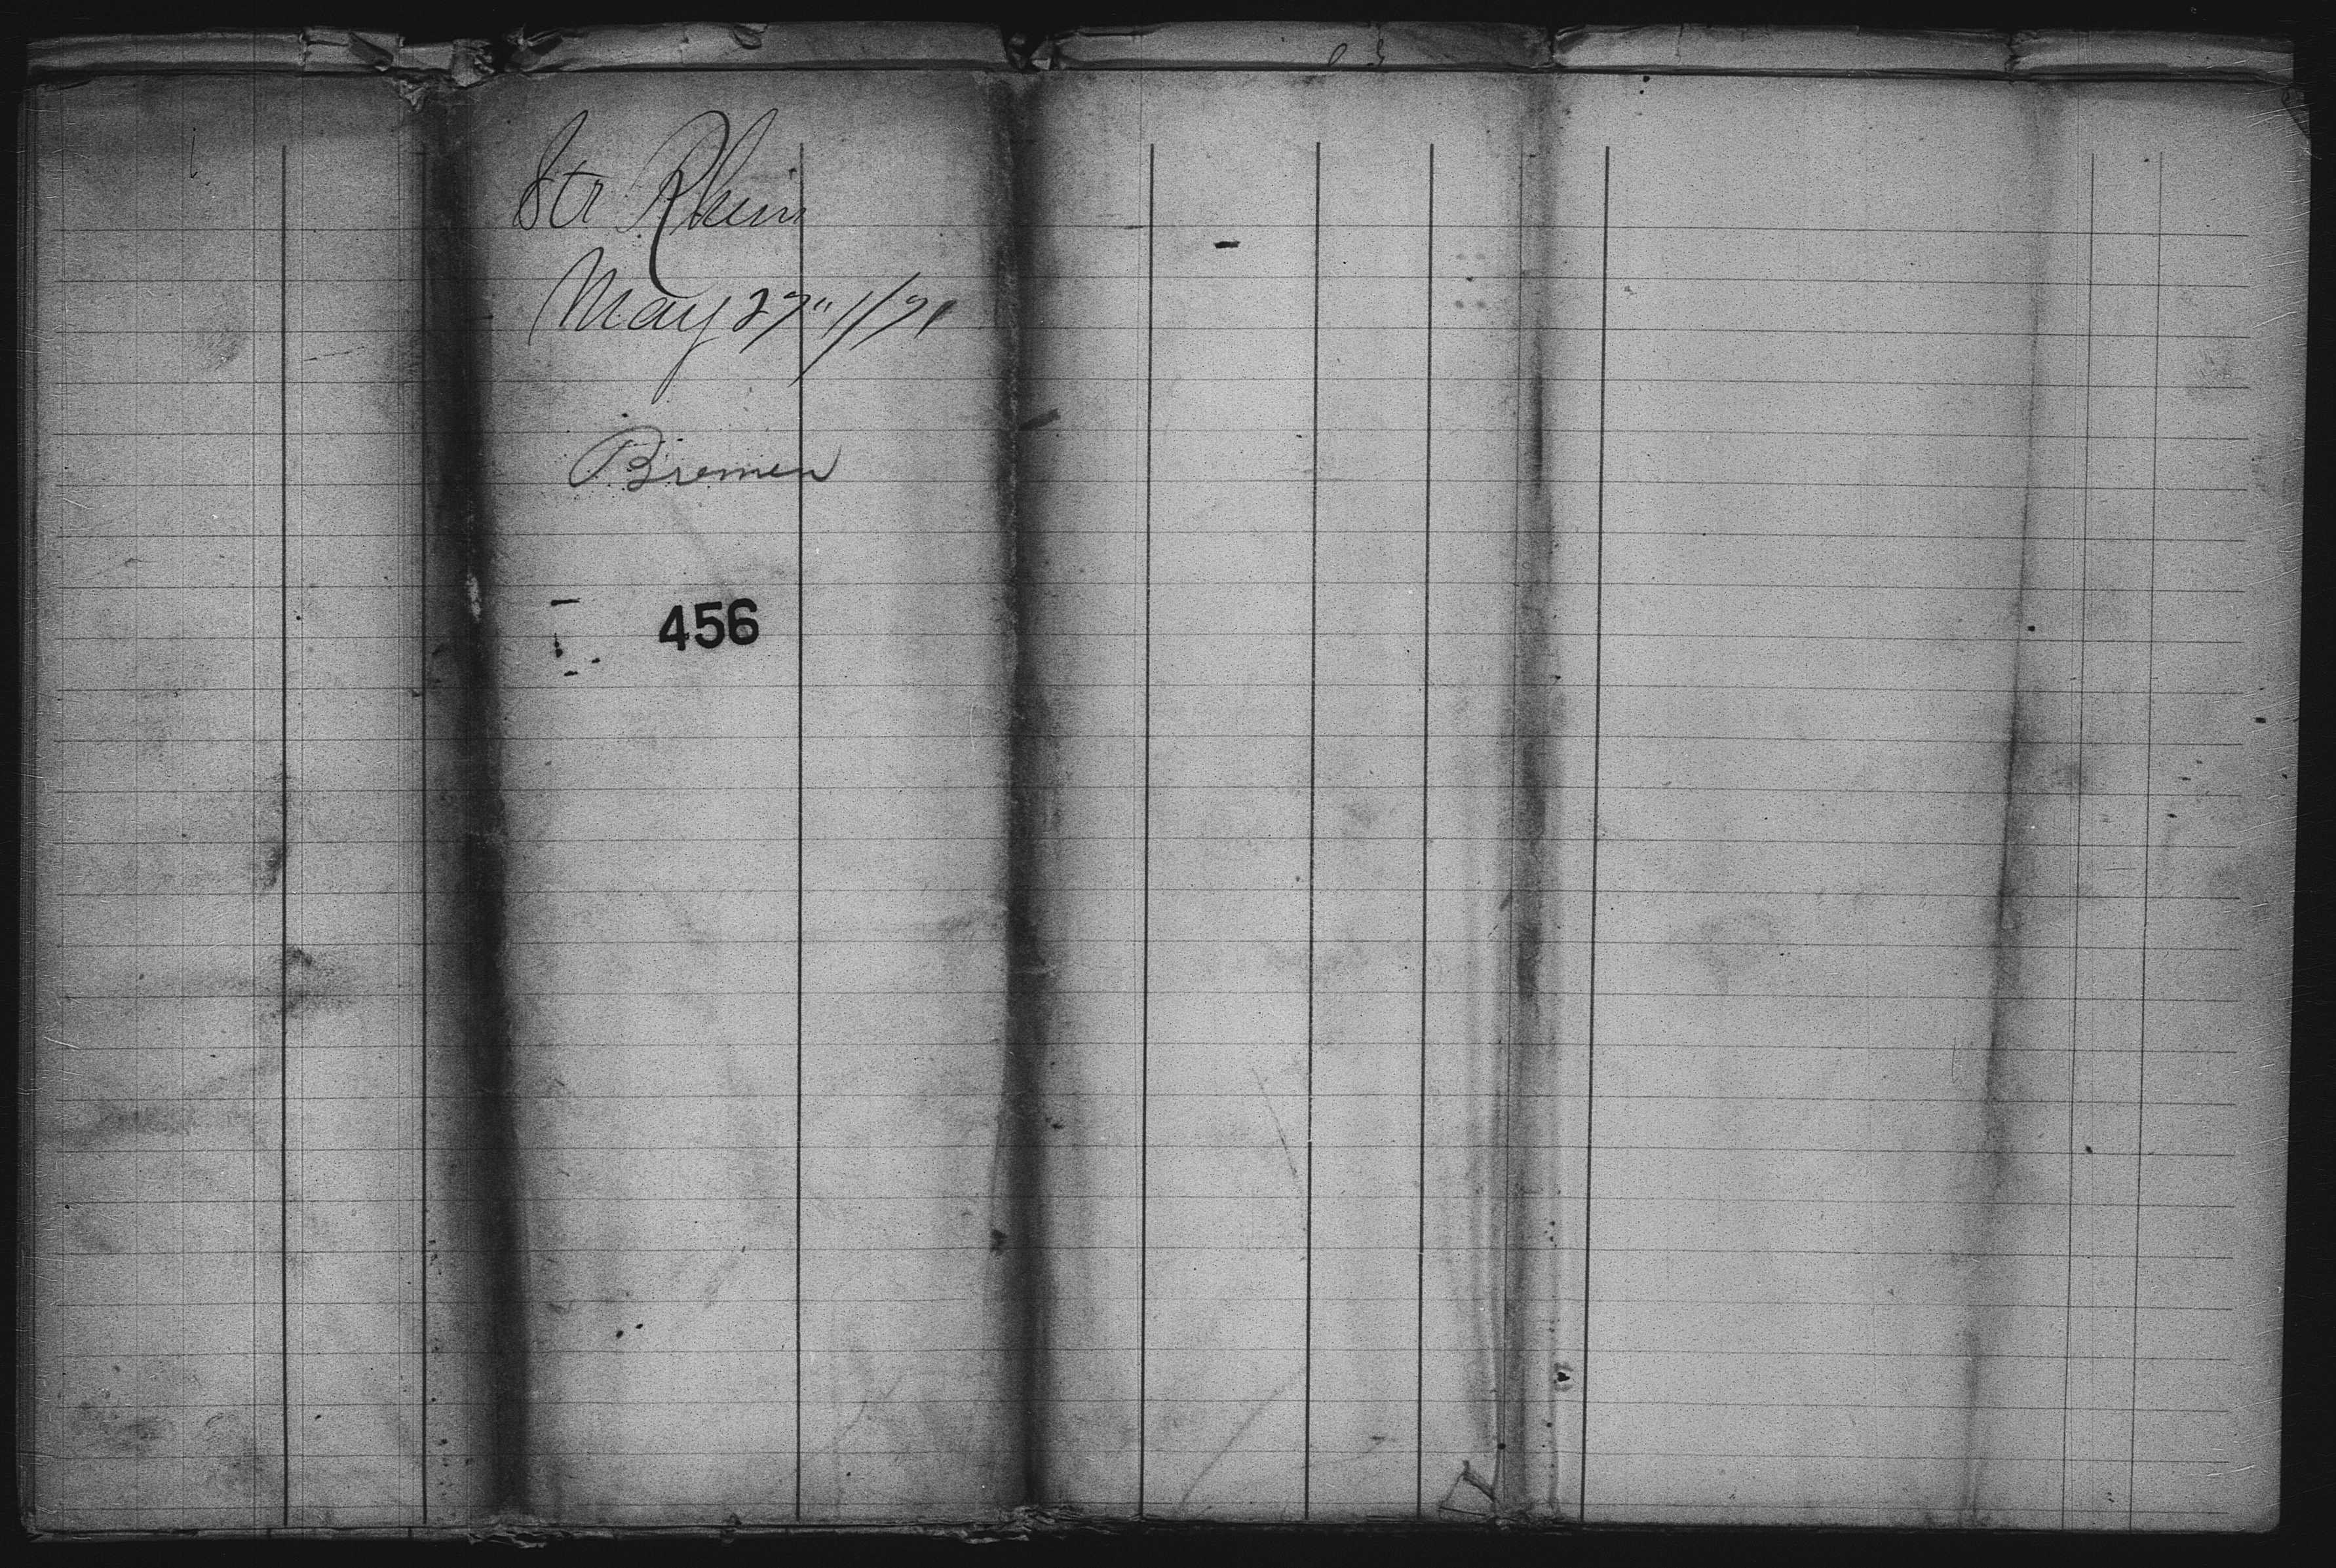 Str Rhein
May 27" 1/71
Bremen
456